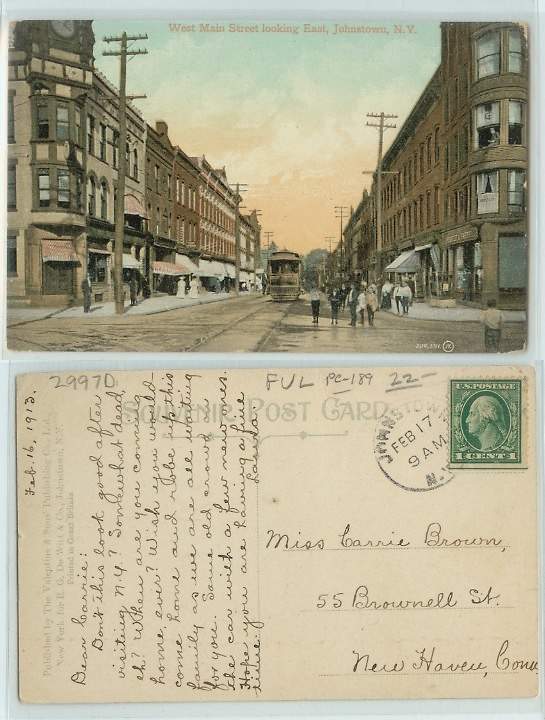 West Main Street looking East, Johnstown, N.Y.
2997D
FUL PC-189 22-
SOUVENIR POST CARD
U.S. POSTAGE
1 CENT 1
JOHNSTOWN
FEB 17
9 AM
N.Y.
Feb. 16, 1913.
Published by The Valentine & Sons' Publishing Co., Ltd.,
New York, for H. G. De Witt & Co., Johnstown, N.Y.
Printed in Great Britain
Dear Carrie:-
Don't this look good after
visiting N.Y.? Somewhat dead,
eh? When are you coming
home, ever? Wish you would
come home and
family as we are all waiting
for you. Same old crowd on
the car with a few new ones.
Hope you are having a fine
time.
Miss Carrie Brown,
55 Brownell St.
New Haven, Conn